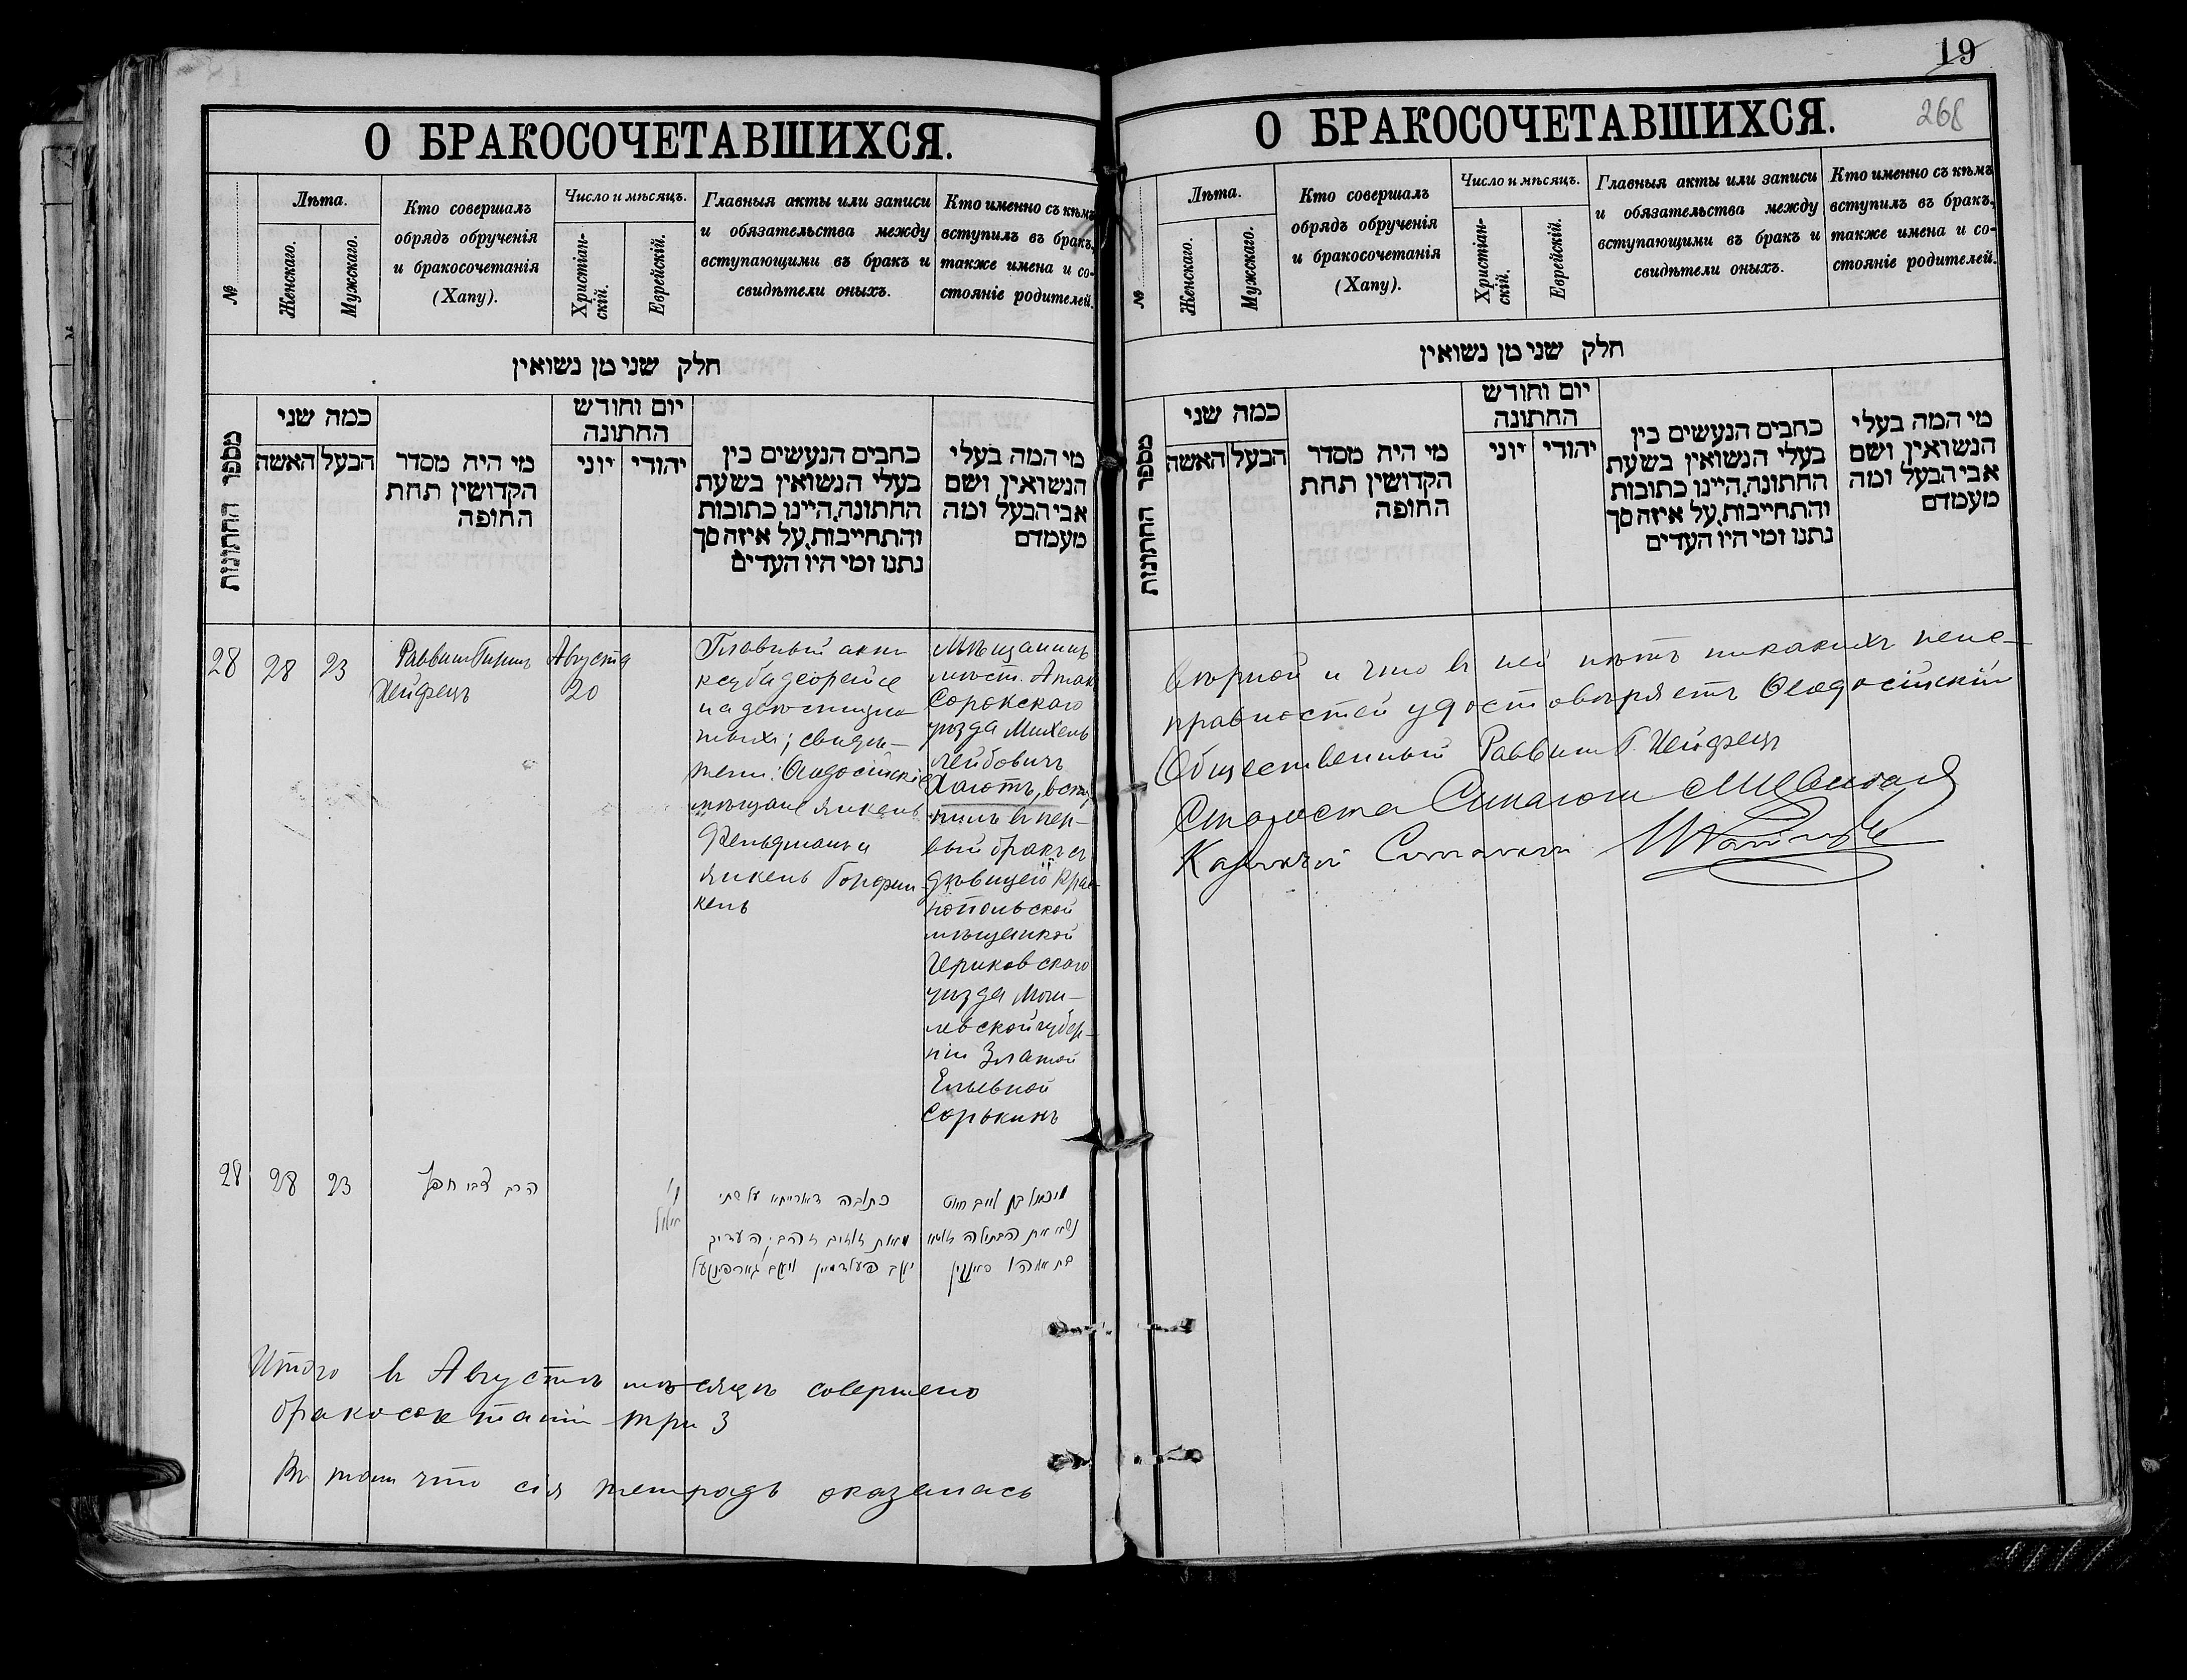 19
268
О БРАКОСОЧЕТАВШИХСЯ.
№
Лѣта.
Женскаго.
Мужскаго.
Кто совершалъ
обрядъ обрученія
и бракосочетанія
(Хапу).
Число и мѣсяцъ.
Христіан-
скій.
Еврейскій.
Главныя акты или записи
и обязательства между
вступающими въ бракъ и
свидѣтели оныхъ.
Кто именно съ кѣмъ
вступилъ въ бракъ,
также имена и со-
стояніе родителей.
חלק שני מן נשואין
מספר החתונות
כמה שני
האשה
הבעל
מי היה מסדר
הקדושין תחת
החופה
יום וחודש
החתונה
יוני
יהודי
כתבים הנעשים בין
בעלי הנשואין בשעת
החתונה, היינו כתובות
והתחייבות, על איזה סך
נתנו ומי היו העדים
מי המה בעלי
הנשואין ושם
אבי הבעל ומה
מעמדם
28
28
23
Раввинъ Гиршъ
Хейфецъ
Августа
20
Главный актъ
ксуба деорейсе
на двѣсти зло-
тыхъ; свидѣ-
тели: Ѳеодосійскіе
мѣщане Янкель
Фельдманъ и
Янкель Горфин-
кель
Мѣщанинъ
мѣст. Атаки
Сорокскаго
уѣзда Михель
Лейбовичъ
Хаютъ, всту-
пилъ въ пер-
вый бракъ съ
дѣвицею Крас-
нопольской
мѣщанкой
Чериковскаго
уѣзда Моги-
левской губер-
ніи Златой
Ельевной
Сорькинъ
28
28
23
הרב צבי חפץ
כתובה דאורייתא על שתי
מאות זהובים זהב; העדים
יעקב פעלדמאן ויעקב גארפינקעל
מיכאל בן לייב חיוט
נשא את הבתולה זלאטא
בת אליהו סארקין
Итого въ Августѣ мѣсяцѣ совершено
бракосочетаній три 3
Въ томъ что сія тетрадь оказалась
О БРАКОСОЧЕТАВШИХСЯ.
№
Лѣта.
Женскаго.
Мужскаго.
Кто совершалъ
обрядъ обрученія
и бракосочетанія
(Хапу).
Число и мѣсяцъ.
Христіан-
скій.
Еврейскій.
Главныя акты или записи
и обязательства между
вступающими въ бракъ и
свидѣтели оныхъ.
Кто именно съ кѣмъ
вступилъ въ бракъ,
также имена и со-
стояніе родителей.
חלק שני מן נשואין
מספר החתונות
כמה שני
האשה
הבעל
מי היה מסדר
הקדושין תחת
החופה
יום וחודש
החתונה
יוני
יהודי
כתבים הנעשים בין
בעלי הנשואין בשעת
החתונה, היינו כתובות
והתחייבות, על איזה סך
נתנו ומי היו העדים
מי המה בעלי
הנשואין ושם
אבי הבעל ומה
מעמדם
вѣрной и что въ ней нѣтъ никакихъ неис-
правностей удостовѣряетъ Ѳеодосійскій
Общественный Раввинъ Г. Хейфецъ
Староста Синагоги
Казначей Синагоги